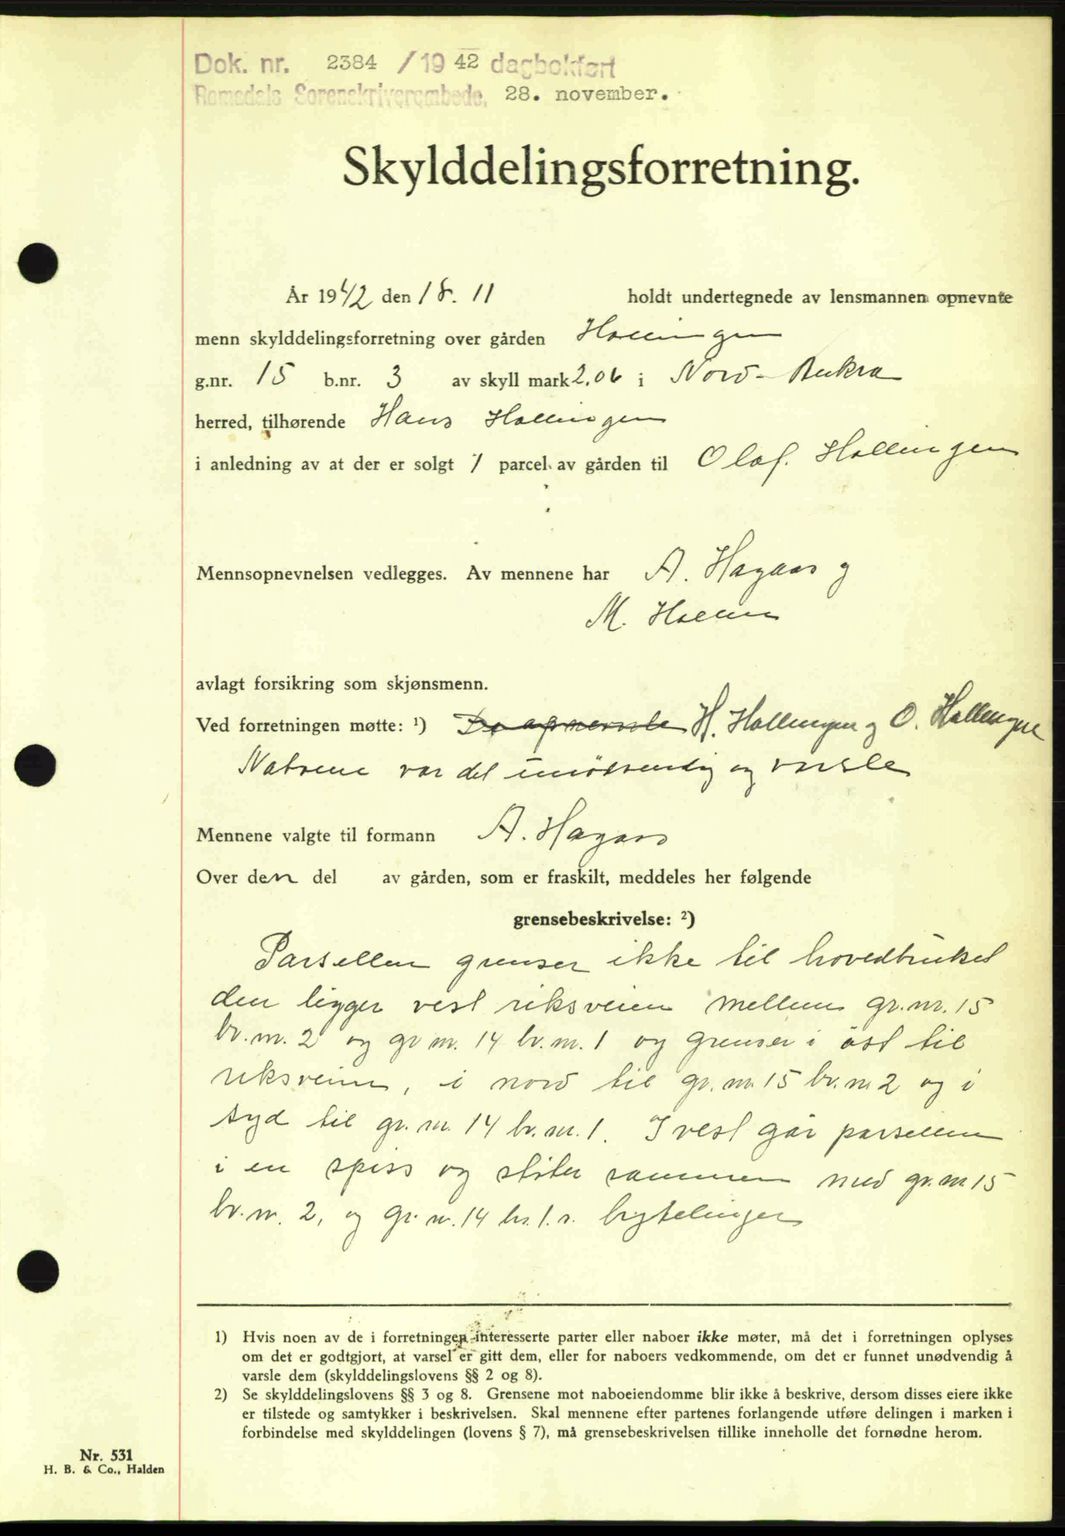 Dok. nr. 2384 /1942 dagbokført
Romsdals Sorenskriverembede, 28. november.
Skylddelingsforretning.
År 1942 den 18. 11 holdt undertegnede av lensmannen opnevnte
menn skylddelingsforretning over gården Hollingen
g.nr. 15 b.nr. 3 av skyll mark 2,06 i Nord-Aukra
herred, tilhørende Hans Hollingen
i anledning av at der er solgt 1 parcel av gården til Olaf. Hollingen
Mennsopnevnelsen vedlegges. Av mennene har A. Hagaas og
M. Hollen
avlagt forsikring som skjønsmenn.
Ved forretningen møtte: ¹) H. Hollingen og O. Hollingen
Naboene var det unødvendig og varsle
Mennene valgte til formann A. Hagaas
Over den del av gården, som er fraskilt, meddeles her følgende
grensebeskrivelse: ²)
Parsellen grenser ikke til hovedbruket
den ligger vest riksveien mellem gr.nr. 15
br.nr. 2 og gr nr. 14 br.nr. 1 og grenser i øst til
riksveien, i nord til gr.nr. 15 br.nr 2 og i
syd til gr.nr. 14 br.nr. 1. I vest går parsellen
i en spiss og støter sammen med gr.nr 15
br.nr. 2, og gr.nr. 14 br. 1.s. bytelinjer
1) Hvis noen av de i forretningen interesserte parter eller naboer ikke møter, må det i forretningen oplyses
om det er godtgjort, at varsel er gitt dem, eller for naboers vedkommende, om det er funnet unødvendig å
varsle dem (skylddelingslovens §§ 2 og 8).
2) Se skylddelingslovens §§ 3 og 8. Grensene mot naboeiendomme blir ikke å beskrive, dersom disses eiere ikke
er tilstede og samtykker i beskrivelsen. Skal mennene efter partenes forlangende utføre delingen i marken i
forbindelse med skylddelingen (lovens § 7), må grensebeskrivelsen tillike inneholle det fornødne herom.
Nr. 531
H. B. & Co., Halden